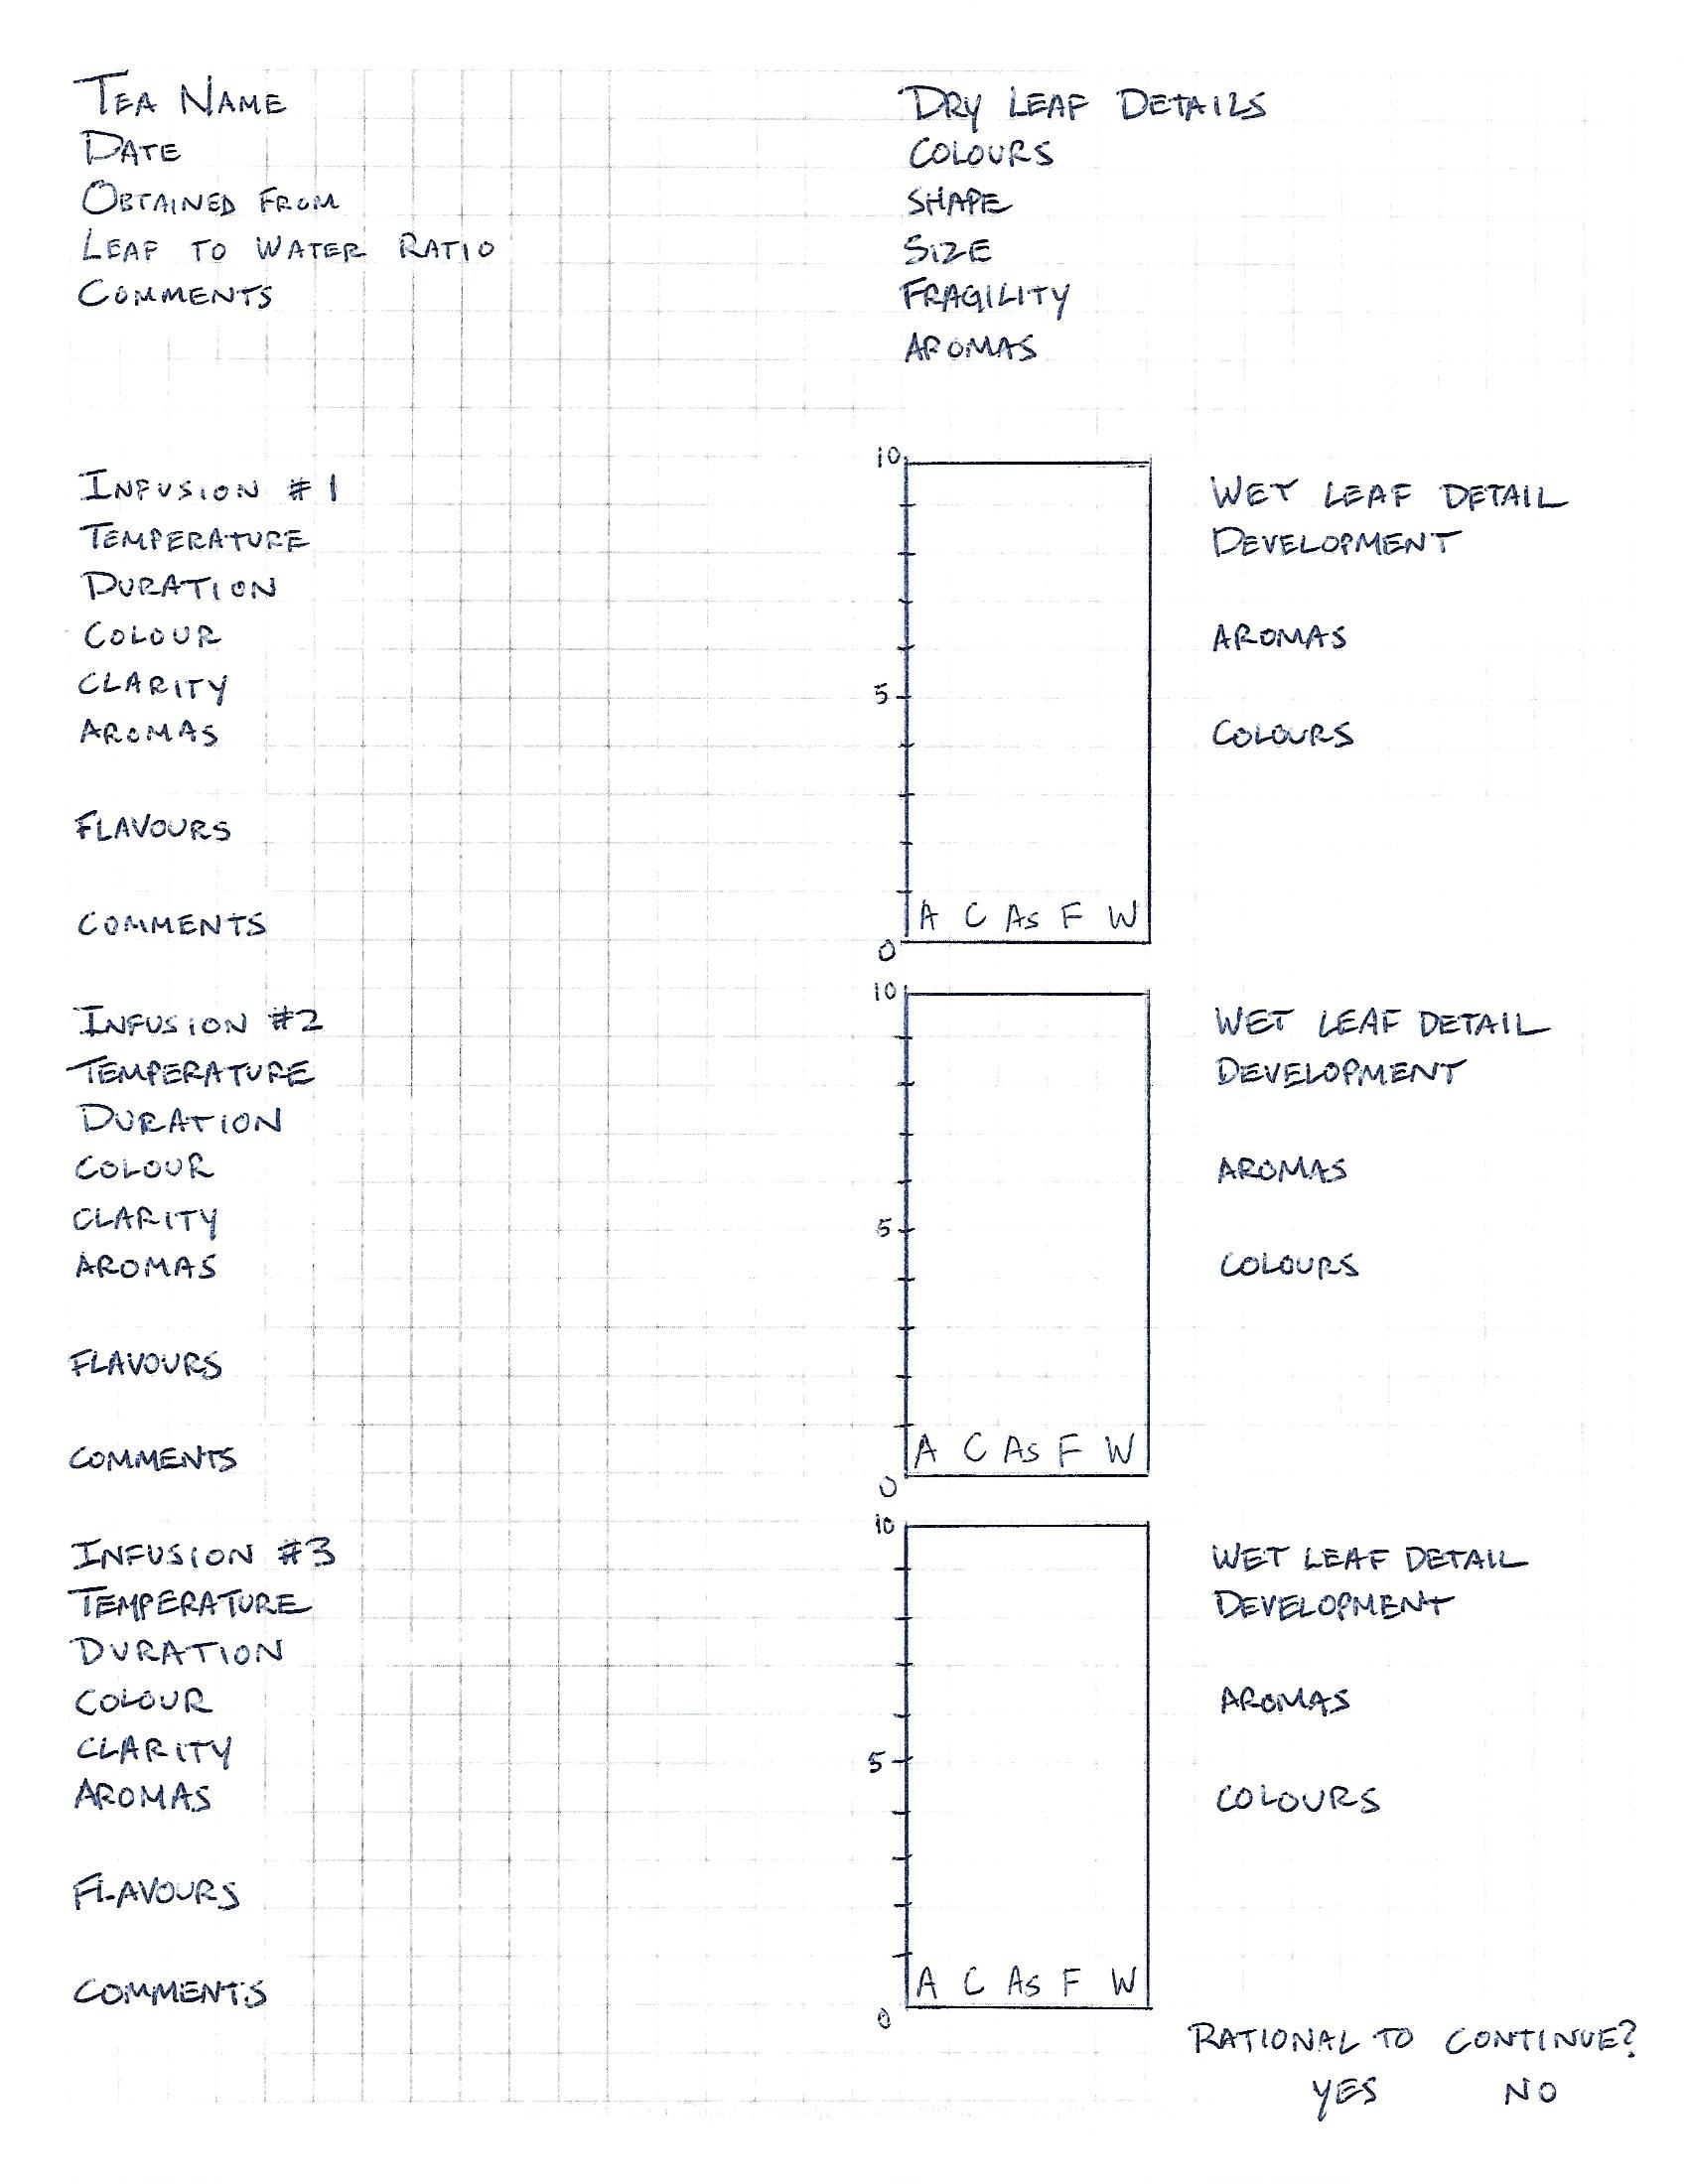 TEA NAME
DATE
OBTAINED FROM
LEAF TO WATER RATIO
COMMENTS
DRY LEAF DETAILS
COLOURS
SHAPE
SIZE
FRAGILITY
AROMAS
INFUSION #1
TEMPERATURE
DURATION
COLOUR
CLARITY
AROMAS
FLAVOURS
COMMENTS
10
5
0
A C As F W
WET LEAF DETAIL
DEVELOPMENT
AROMAS
COLOURS
INFUSION #2
TEMPERATURE
DURATION
COLOUR
CLARITY
AROMAS
FLAVOURS
COMMENTS
10
5
0
A C As F W
WET LEAF DETAIL
DEVELOPMENT
AROMAS
COLOURS
INFUSION #3
TEMPERATURE
DURATION
COLOUR
CLARITY
AROMAS
FLAVOURS
COMMENTS
10
5
0
A C As F W
WET LEAF DETAIL
DEVELOPMENT
AROMAS
COLOURS
RATIONAL TO CONTINUE?
YES NO